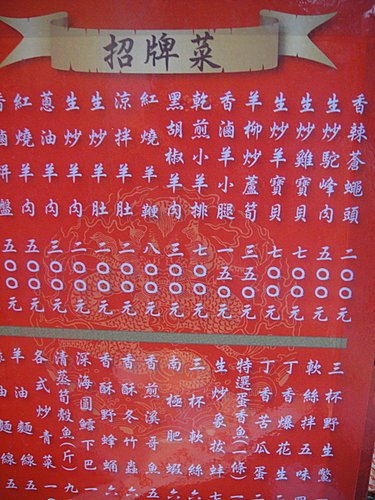 招牌菜
香辣蒼蠅頭 二〇〇元
生炒駝峰肉 五〇〇元
生炒雞寶貝 七〇〇元
生炒羊寶貝 七〇〇元
羊柳炒蘆筍 三五〇元
香滷羊小腿 一五〇元
乾煎小羊排 七〇〇元
黑胡椒羊肉 三〇〇元
紅燒羊鞭 八〇〇元
涼拌羊肚 二〇〇元
生炒羊肚 二〇〇元
生炒羊肉 二〇〇元
蔥油羊肉 三〇〇元
紅燒羊肉 五〇〇元
香滷拼盤 五〇〇元
三杯野生鱉
軟絲拌生味
丁香爆花生
丁香苦瓜蛋
特選蛋香魚(二條)
生炒象拔蚌
三杯軟絲
南極肥蝦
香煎溪哥魚
香酥竹蟲
香酥野蜂蛹
深海圓鱈下巴
清蒸筍殼魚(斤)
各式炒青菜
羊油麵線
油麵線